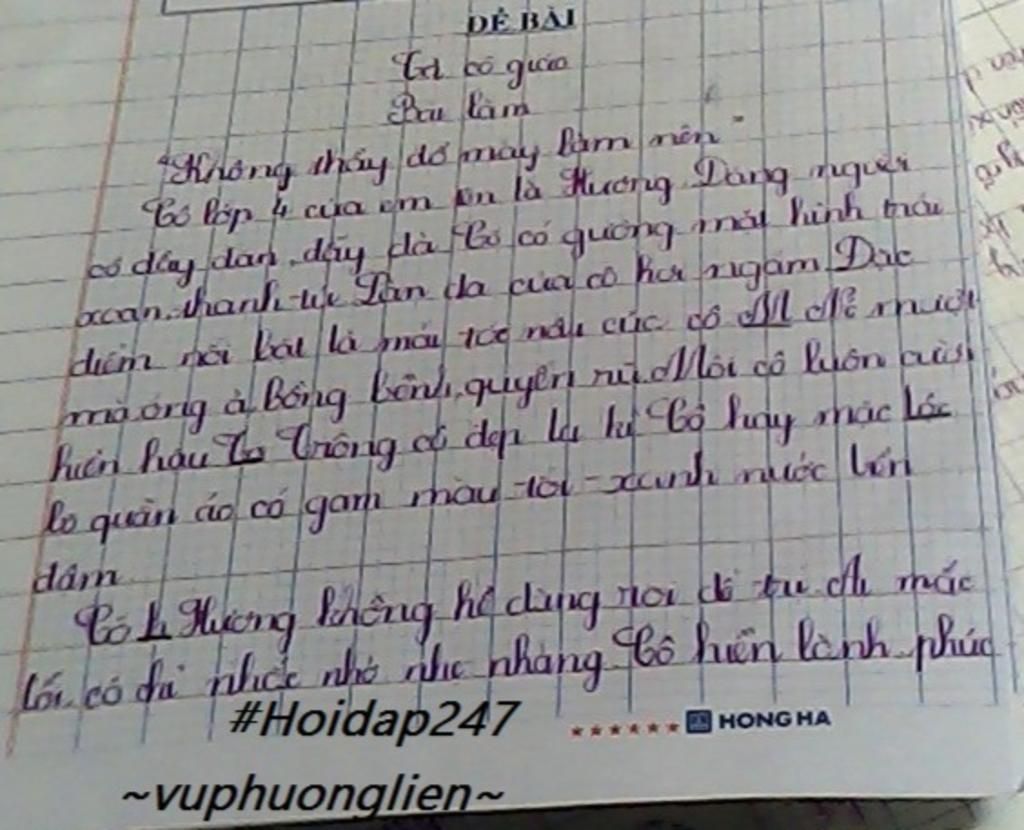 ĐỀ BÀI
Tả cô giáo
Bài làm
"Không thầy đố mày làm nên"
Cô lớp 4 của em tên là Hương. Dáng người
cô dây dán, đầy đà. Cô có gương mặt hình trái
xoan, thanh tú. Làn da của cô hơi ngăm. Đặc
điểm nổi bật là mái tóc nâu của cô
óng ả. Bồng bềnh, quyến rũ. Môi cô luôn cười
hiền hậu. Trông cô đẹp lạ kì. Cô hay mặc
quần áo có gam màu tối - xanh nước biển
đậm.
Cô Hương không hề dùng roi để mắc
lỗi, cô chỉ nhắc nhở nhẹ nhàng. Cô hiền lành, phúc
#Hoidap247
HONG HA
~vuphuonglien~